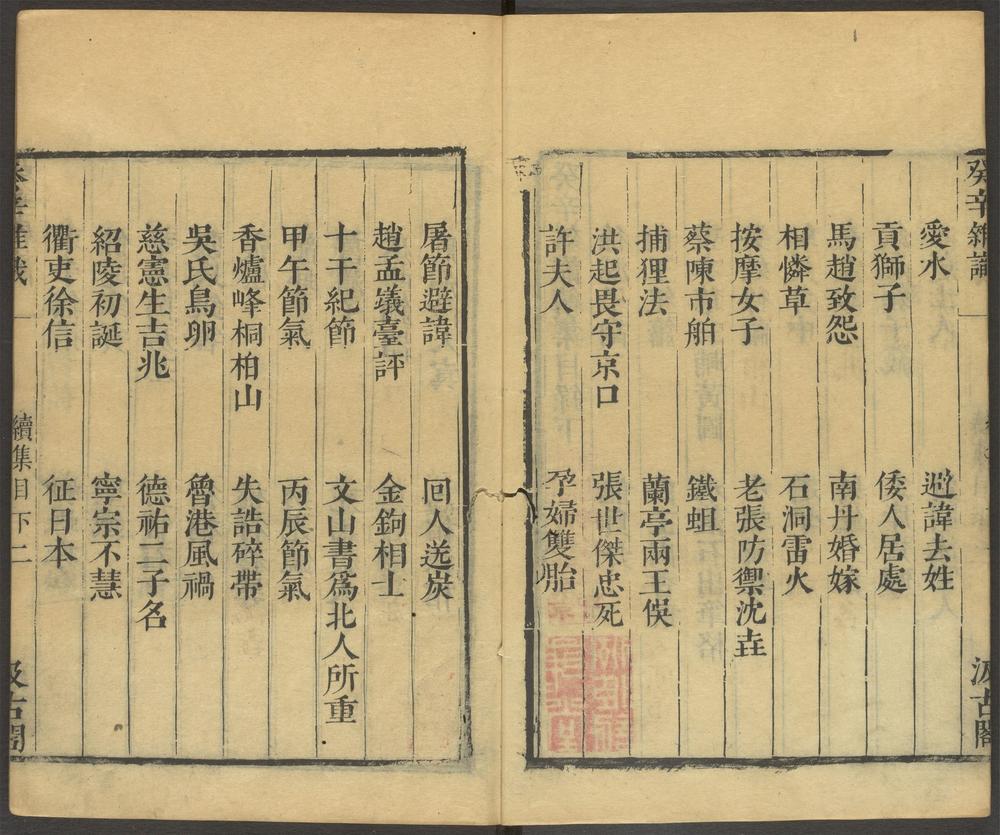 癸辛雜識
汲古閣
愛水 避諱去姓
貢獅子 倭人居處
馬趙致怨 南丹婚嫁
相憐草 石洞雷火
按摩女子 老張防禦沈垚
蔡陳市舶 鐵蛆
捕狸法 蘭亭兩王俁
洪起畏守京口 張世傑忠死
許夫人 孕婦雙胎
屠節避諱 回人送炭
趙孟㬎臺評 金鉤相士
十干紀節 文山書爲北人所重
甲午節氣 丙辰節氣
香爐峰桐柏山 失誥碎帶
吳氏鳥卵 魯港風禍
慈憲生吉兆 德祐三子名
紹陵初誕 寧宗不慧
衢吏徐信 征日本
癸辛雜識 續集目下 二 汲古閣